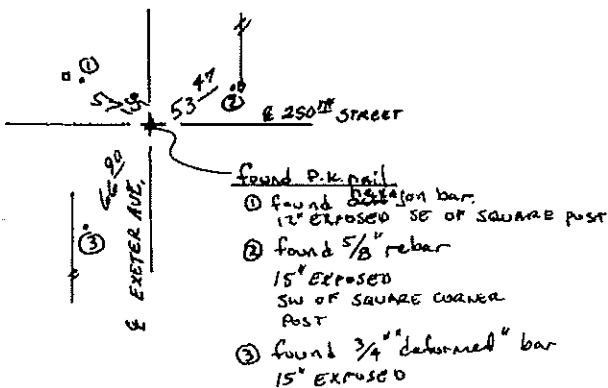 ①
57
53 47
②
℄ 250TH STREET
66 90
③
℄ EXETER AVE.
found P.K. nail
① found hexagon bar.
12" EXPOSED SE OF SQUARE POST
② found 5/8" rebar
15" EXPOSED
SW OF SQUARE CORNER
POST
③ found 3/4" "deformed" bar
15" EXPOSED